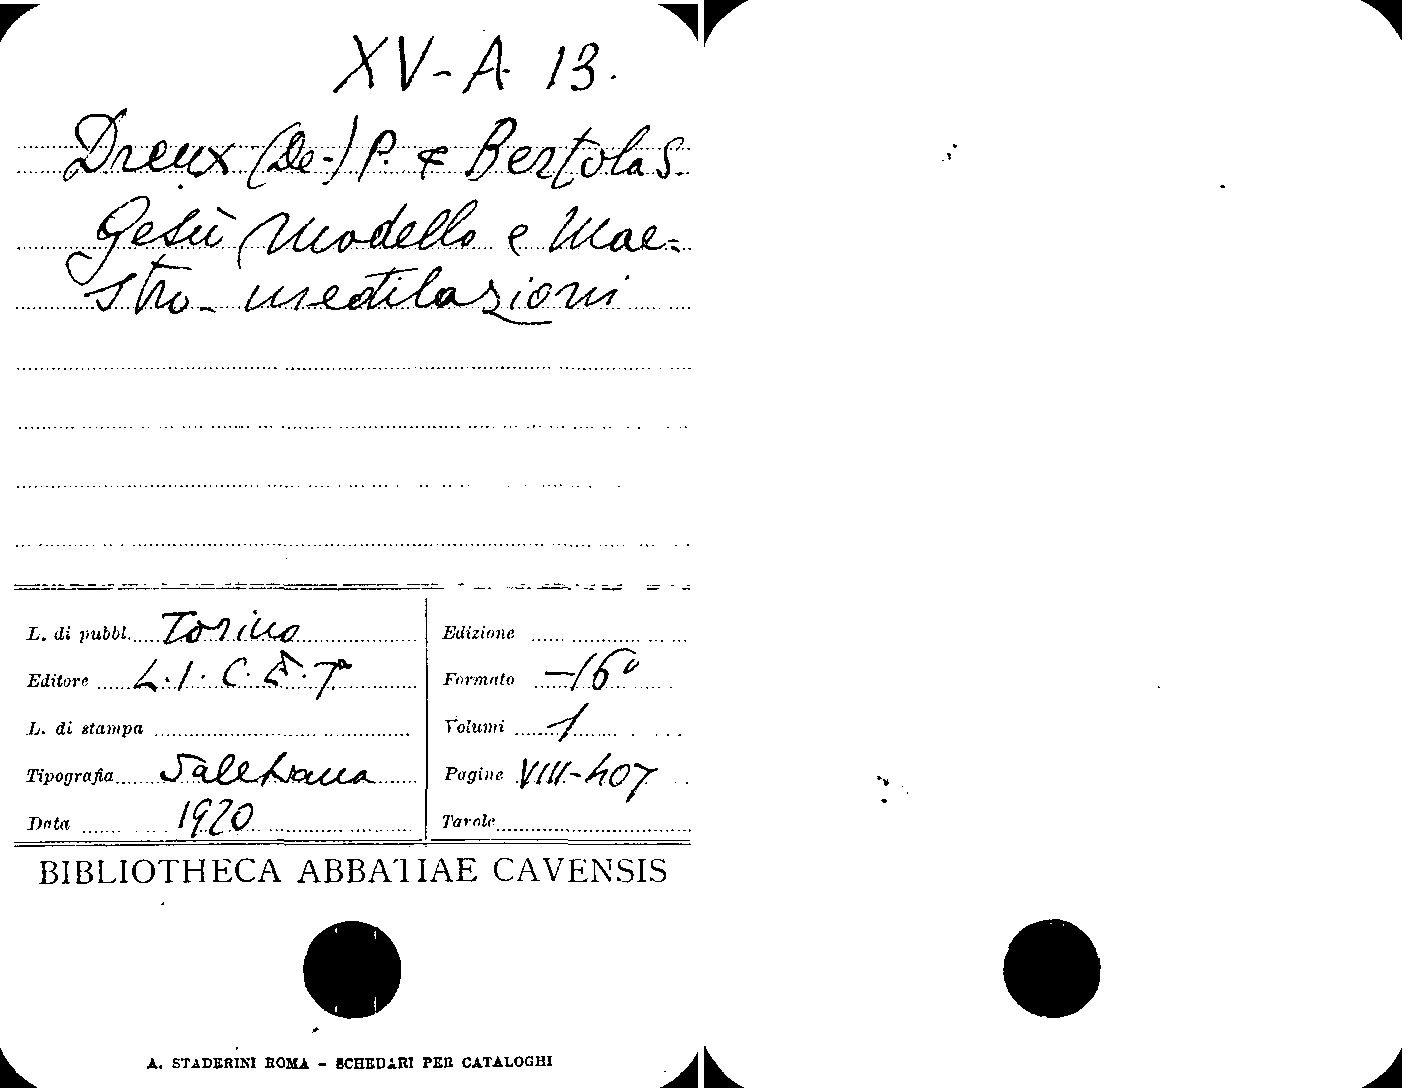 XV-A 13.
Dreux (De-) P. & Bertola S.
Gesù Modello e Mae-
stro- meditazioni
L. di pubbl. Torino
Editore L.I.C.E.T.
L. di stampa
Tipografia Salesiana
Data 1920
Edizione
Formato -16°
Volumi 1
Pagine VIII-407
Tavole
BIBLIOTHECA ABBATIAE CAVENSIS
A. STADERINI ROMA - SCHEDARI PER CATALOGHI